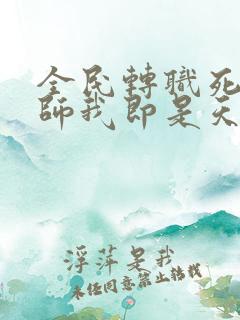 全民轉職死
師我即是天
浮萍是我
未经同意禁止转载